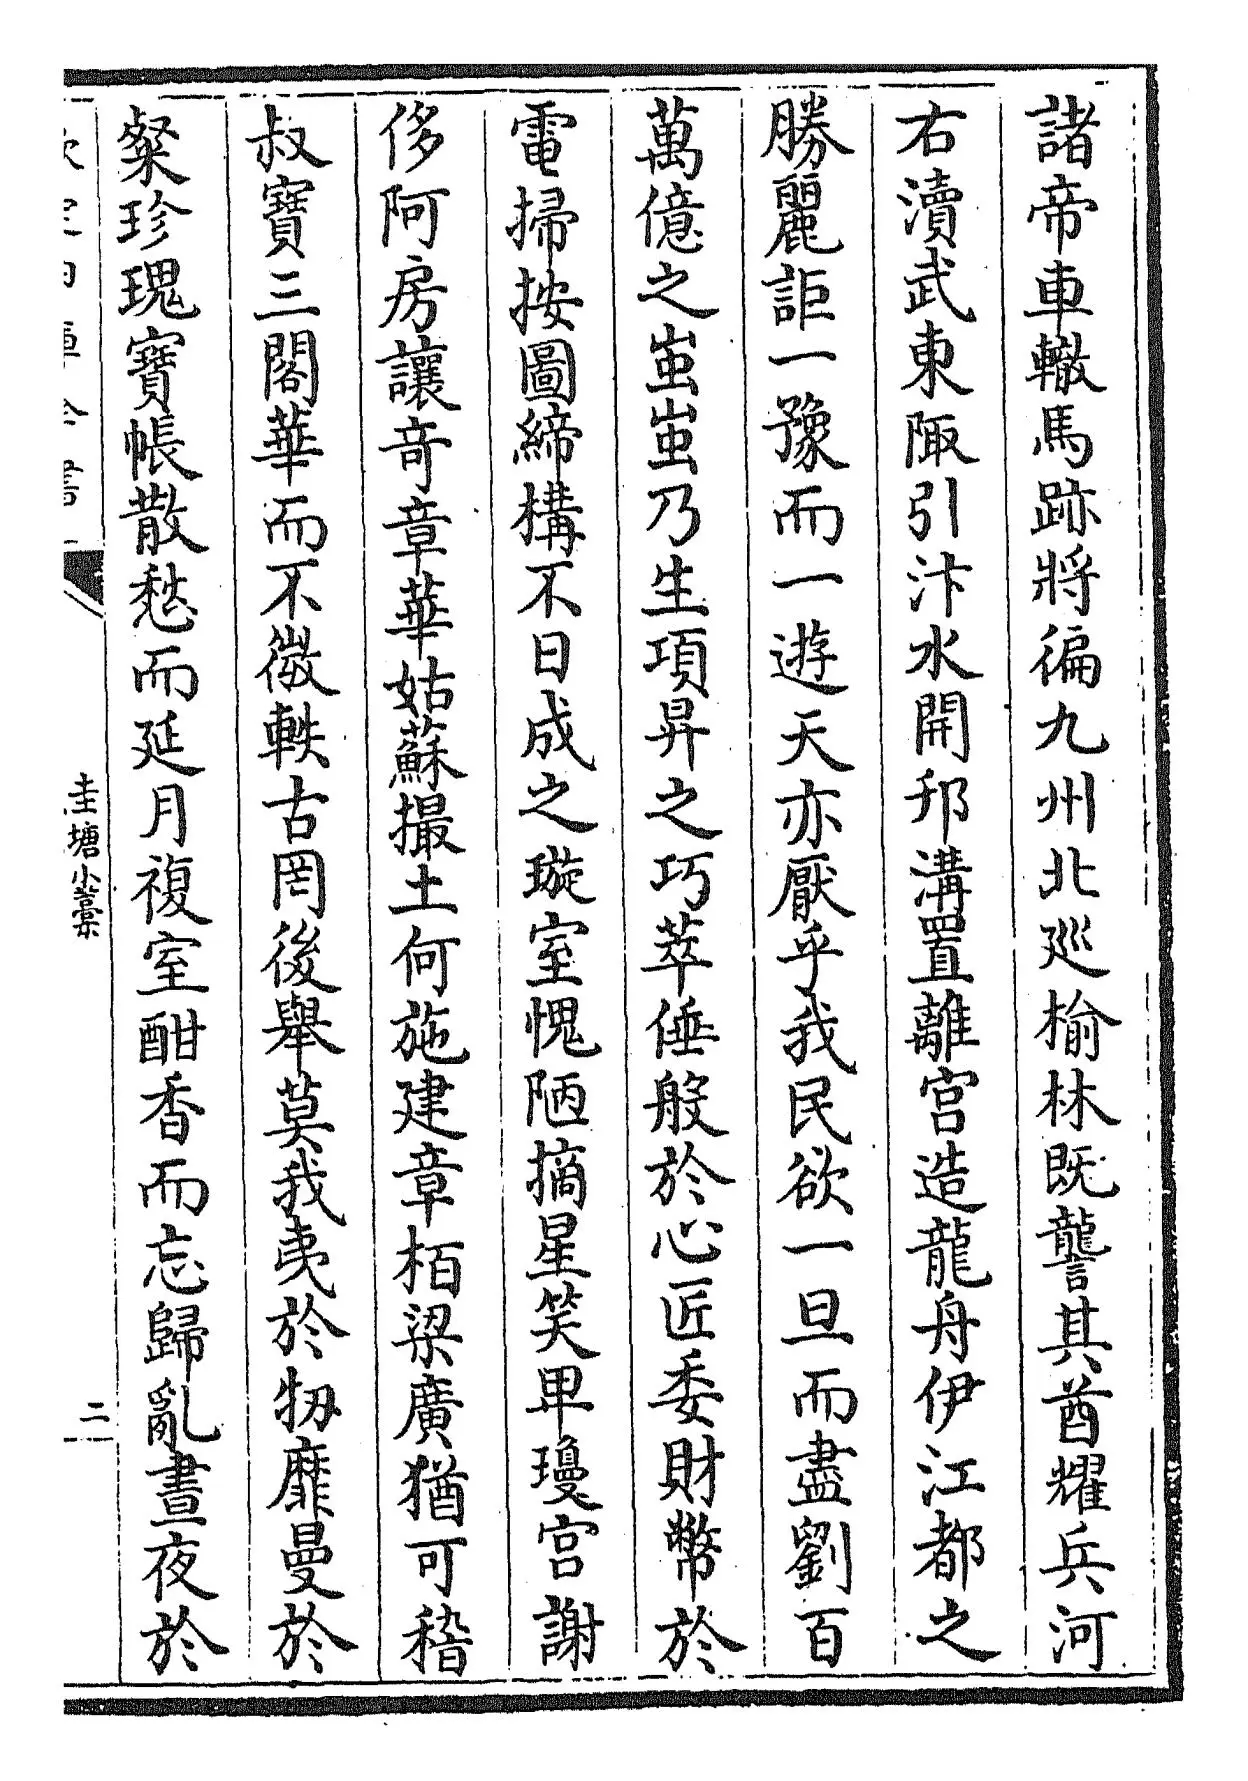 諸帝車轍馬跡將徧九州北廵榆林既讋其酋耀兵河
右瀆武東陬引汴水開邗溝置離宫造龍舟伊江都之
勝麗詎一豫而一遊天亦厭乎我民欲一旦而盡劉百
萬億之蚩蚩乃生項昇之巧萃倕般於心匠委財幣於
電掃按圖締構不日成之璇室愧陋摘星笑卑瓊宫謝
侈阿房讓竒章華姑蘇撮土何施建章栢梁廣猶可稽
叔寶三閣華而不徴軼古罔後舉莫我夷於牣靡曼於
粲珍瑰寶帳散愁而延月複室酣香而忘歸亂晝夜於
欽定四庫全書
圭塘小藁
二